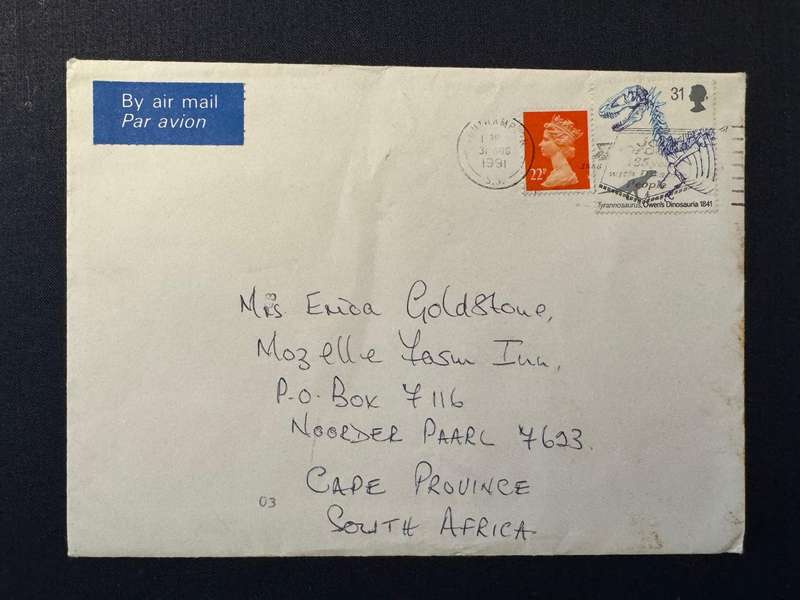 By air mail
Par avion
1991
22P
31
with
People
Tyrannosaurus, Owen's Dinosauria 1841
Mrs Erica Goldstone,
Mozelle Farm Inn,
P.O. Box 7116
NOORDER PAARL 7623.
CAPE PROVINCE
SOUTH AFRICA.
03